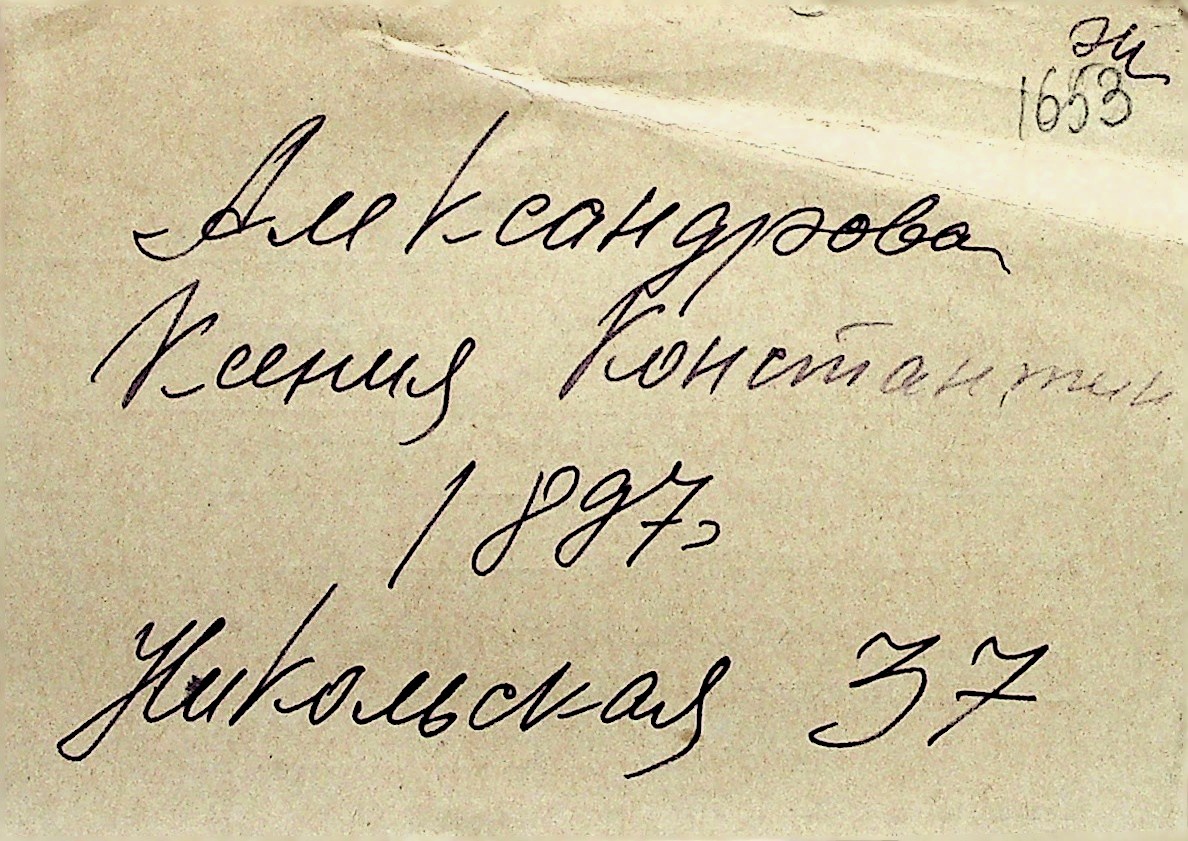 1653
Александрова
Ксения Константин
1897г
Никольская 37